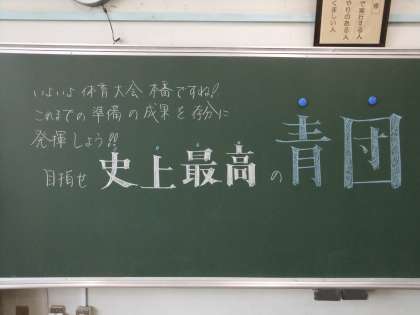 で実行する人
やりのある人
くましい人
いよいよ体育大会本番ですね!
これまでの準備の成果を存分に
発揮しよう!!
目指せ 史上最高の青団